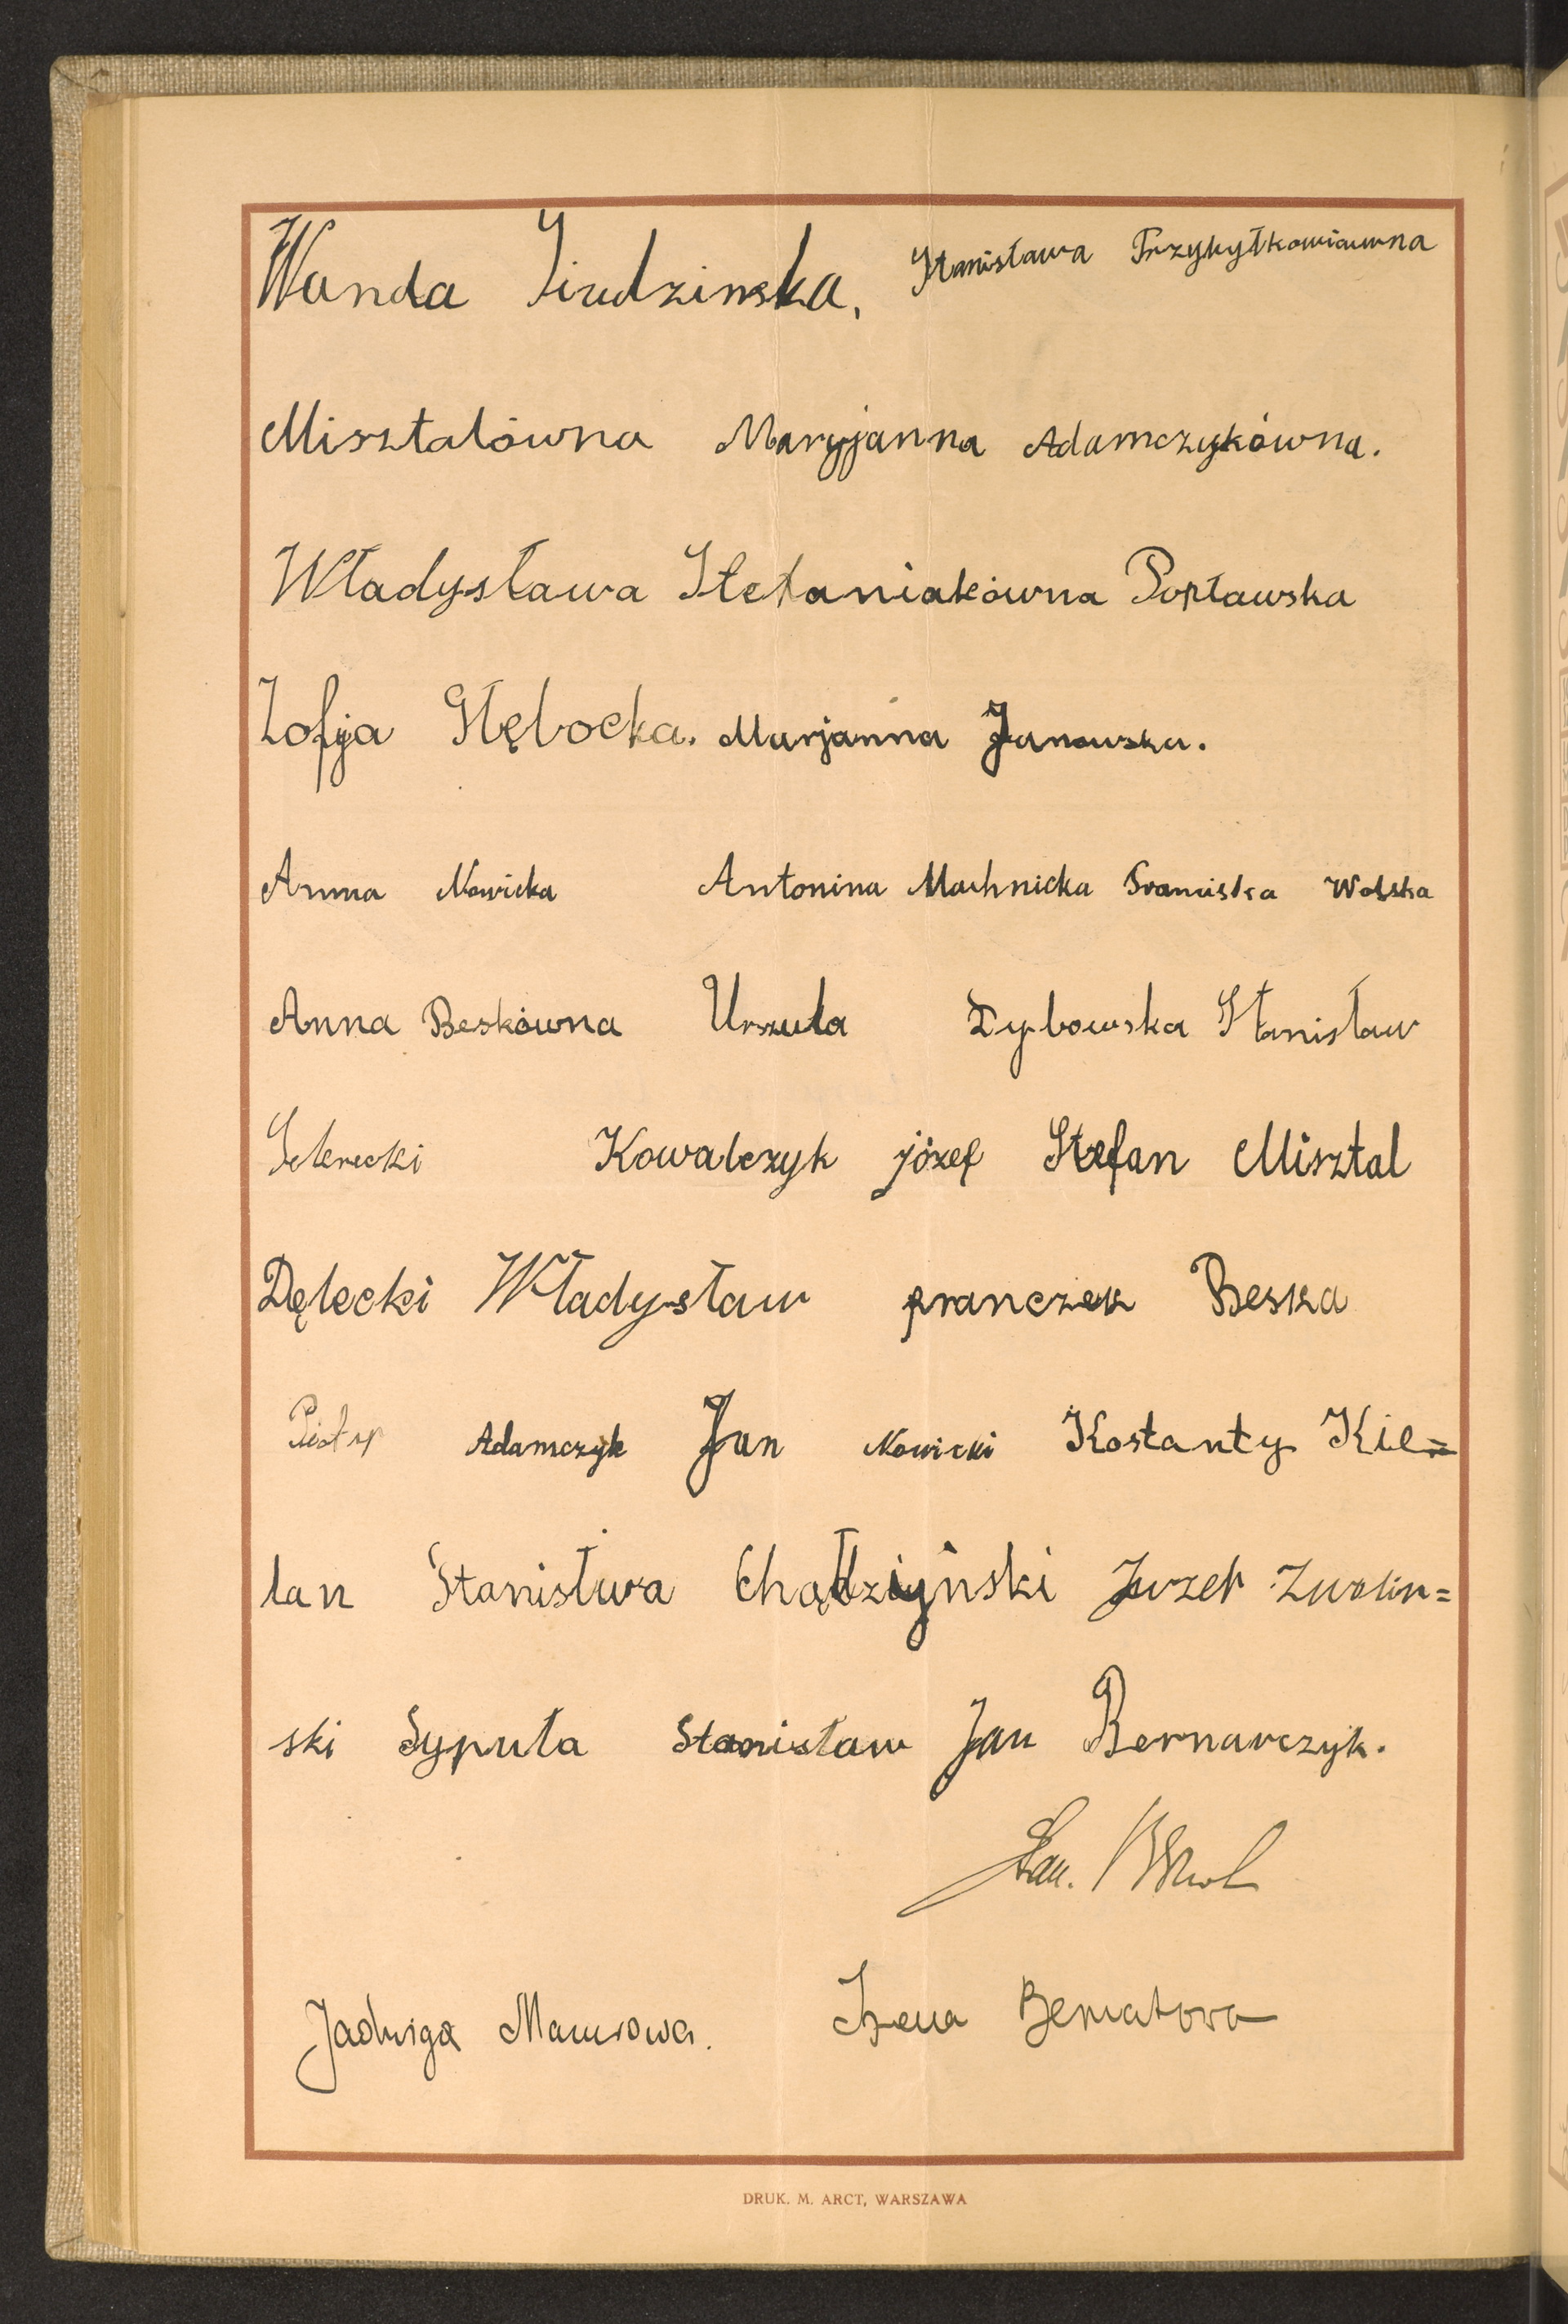 Wanda Siudzinska, Stanisława Przybyłkowiauwna
Misztalówna Maryjanna Adamczykówna.
Władysława Stefaniakówna Popławska
Zofija Głębocka. Marjanna Janowska.
Anna Nowicka Antonina Machnicka Franciska Wolska
Anna Beskówna Urszula Dybowska Stanisław
Kowalczyk józef Stefan Misztal
Dęlecki Władysław franczek Beska
Piotr Adamczyk Jan Nowicki Kostanty Kie=
lan Stanisłwa Chądziyński Juzef Zwolin=
ski Sypuła Stanisław Jan Bernarczyk.
Jadwiga Maurowa. Irena Bernatowa
DRUK. M. ARCT, WARSZAWA